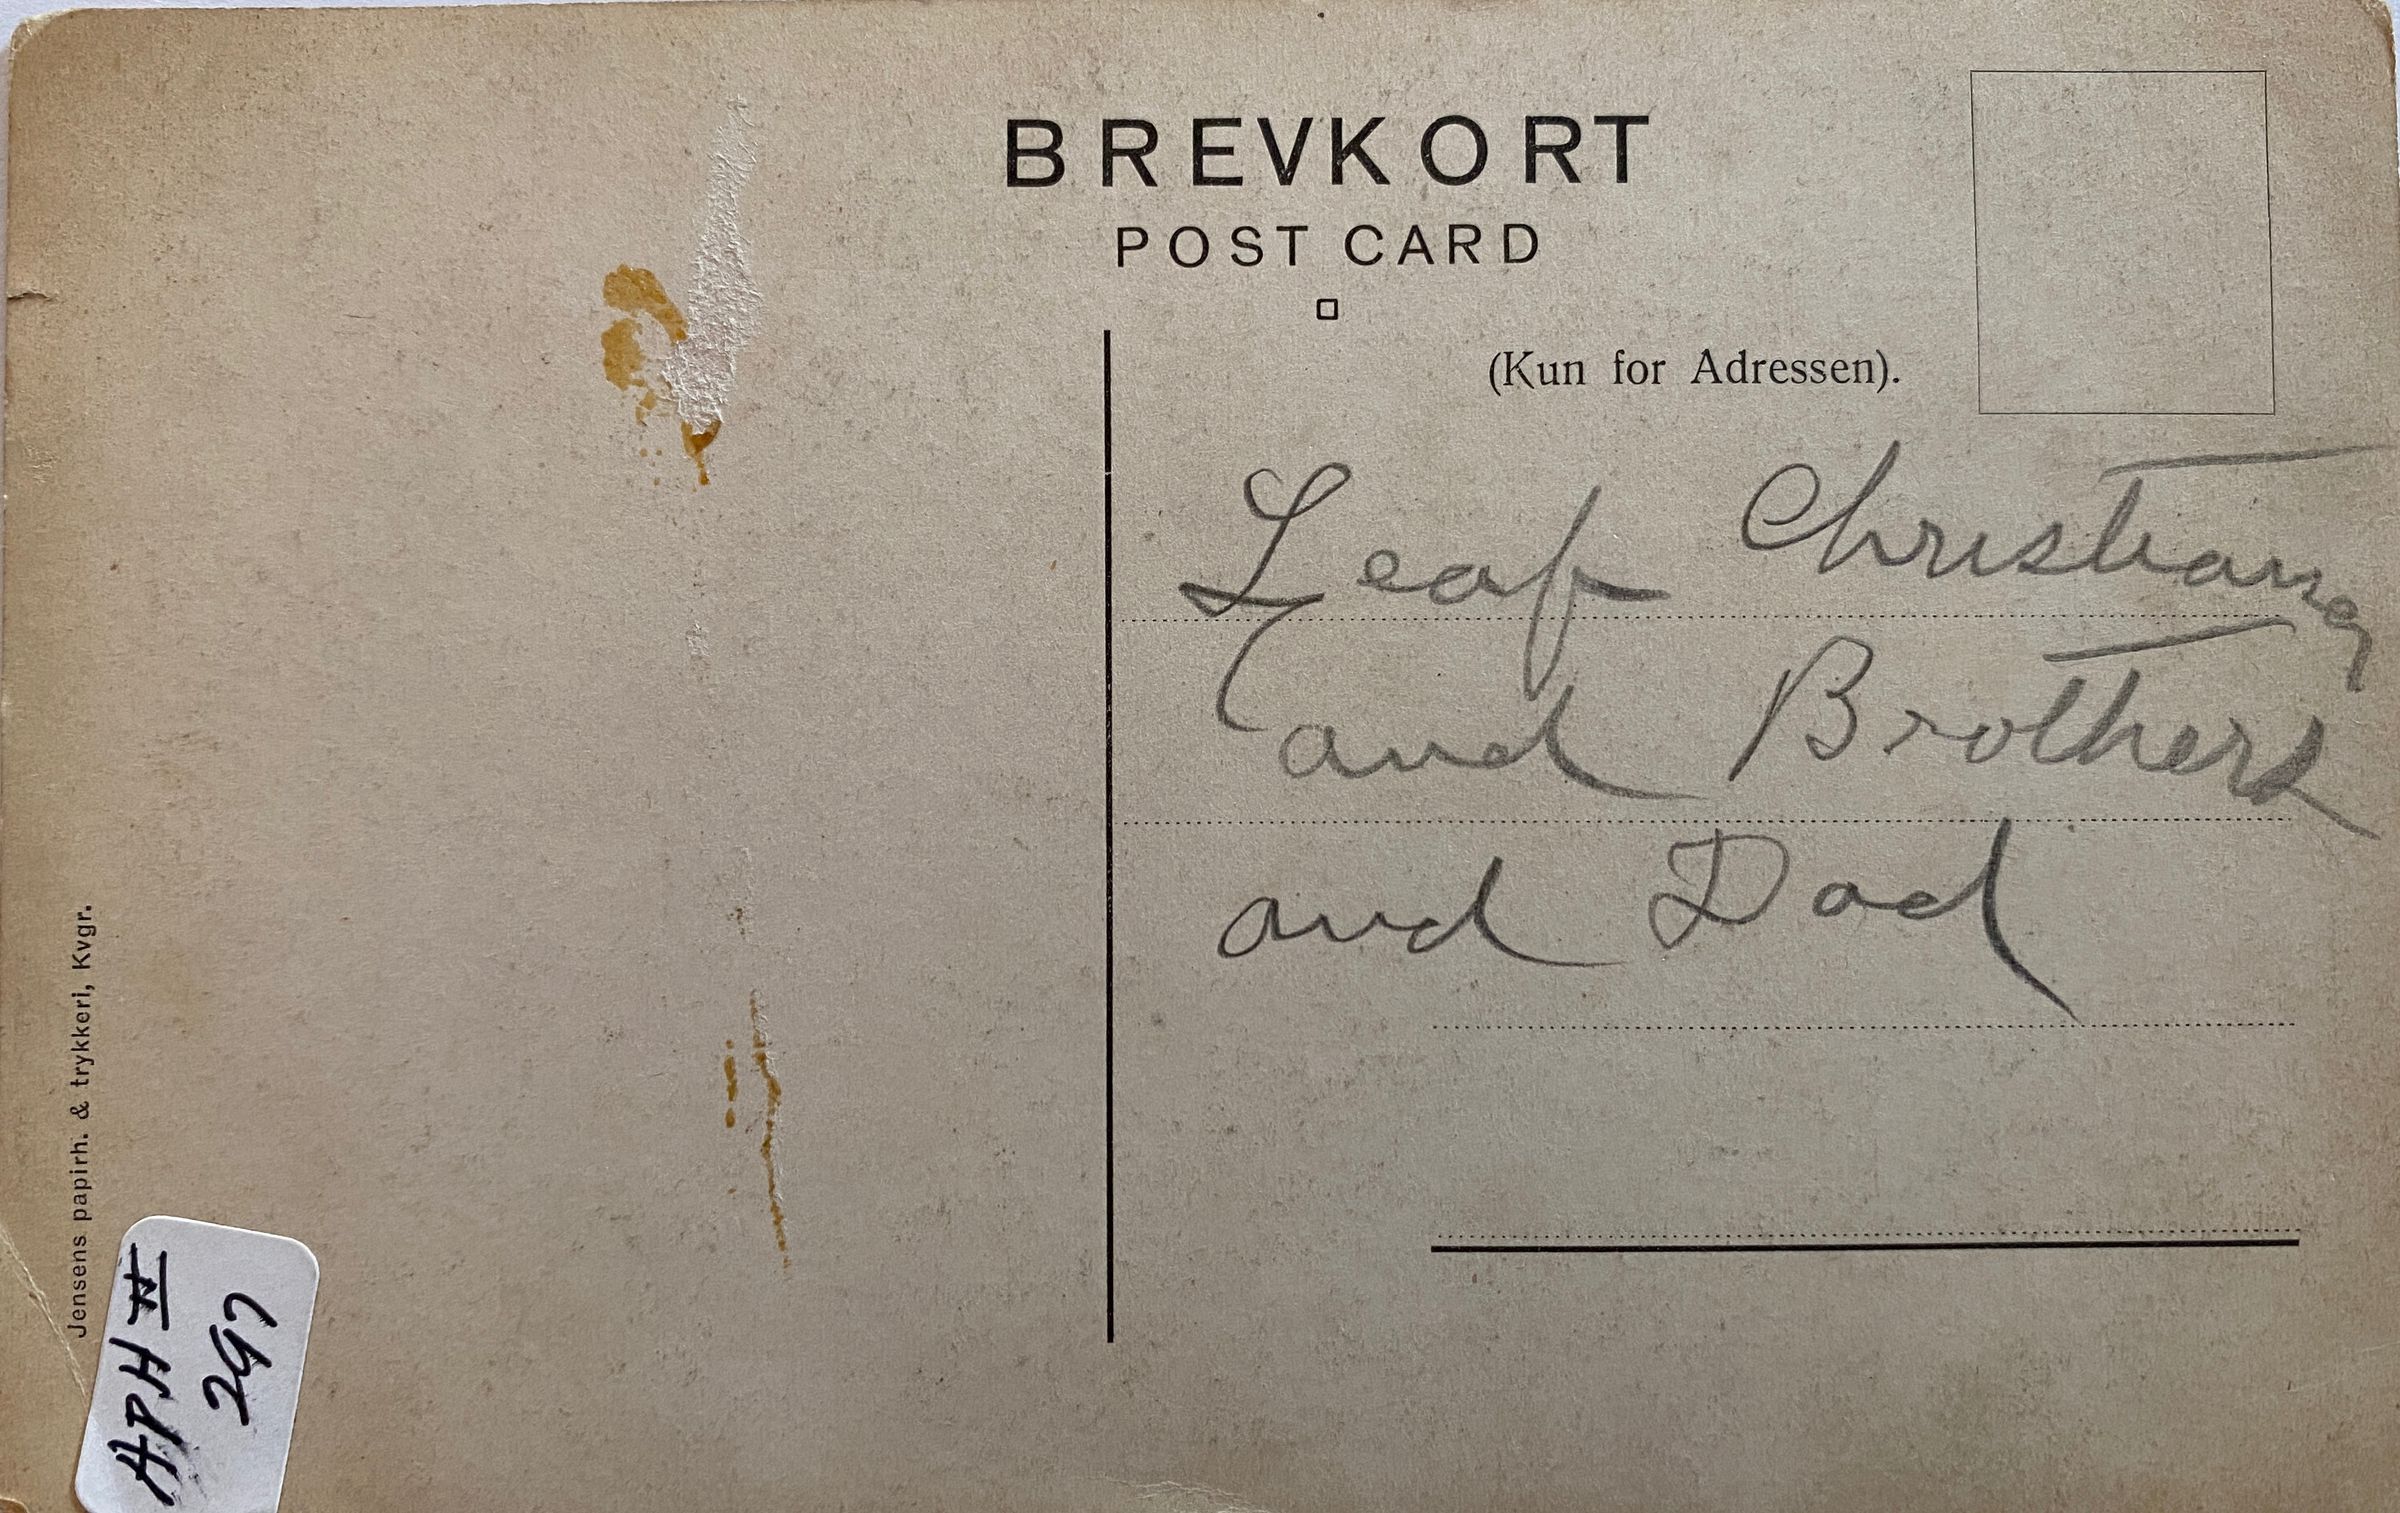 BREVKORT
POST CARD
(Kun for Adressen).
Leaf Christiana
and Brothers
and Dad
Jensens papirh. & trykkeri, Kvgr.
APH IV
297